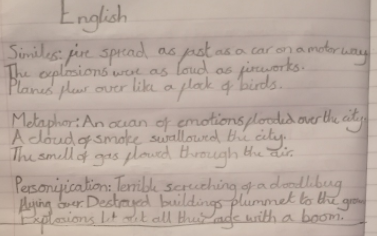 English
Similes: fire spread as fast as a car on a motorway
The explosions were as loud as fireworks.
Planes flew over like a flock of birds.
Metaphor: An ocean of emotions flooded over the city
A cloud of smoke swallowed the city.
The smell of gas flowed through the air.
Personification: Terrible screeching of a doodlebug
flying over Destroyed buildings plummet to the
Explosions let out all their rage with a boom.